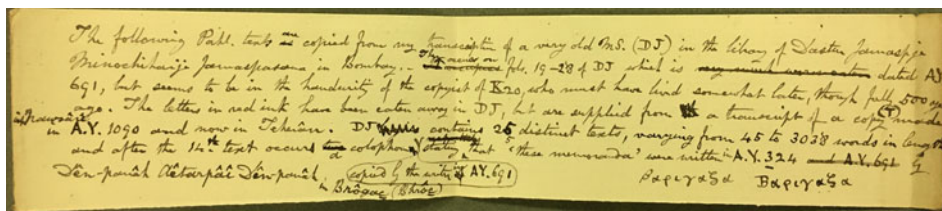 The following Pahl. texts are copied from my transcription of a very old MS. (DJ) in the library of Dastur Jamaspji
Minochiharji Jamaspasana in Bombay. – This occurs on fols. 19–28 of DJ which is very much worm eaten dated A.Y.
691, but seems to be in the handwriting of the copyist of K20, who must have lived somewhat later, though fully 500 years
ago. The letters in red ink have been eaten away in DJ, but are supplied from a transcript of a copy (T) made
in A.Y. 1090 and now in Teherân. DJ contains 26 distinct texts, varying from 45 to 3038 words in length
and after the 14th text occurs a colophon, stating that 'these memoranda' were written in A.Y. 324 and A.Y. 691 by
Dên-panâh Aêtarpâê Dên-panâh, copied by the writer in A.Y. 691
in Brôgac (Bhrôc) Βαριγαζα Βαριγαζα